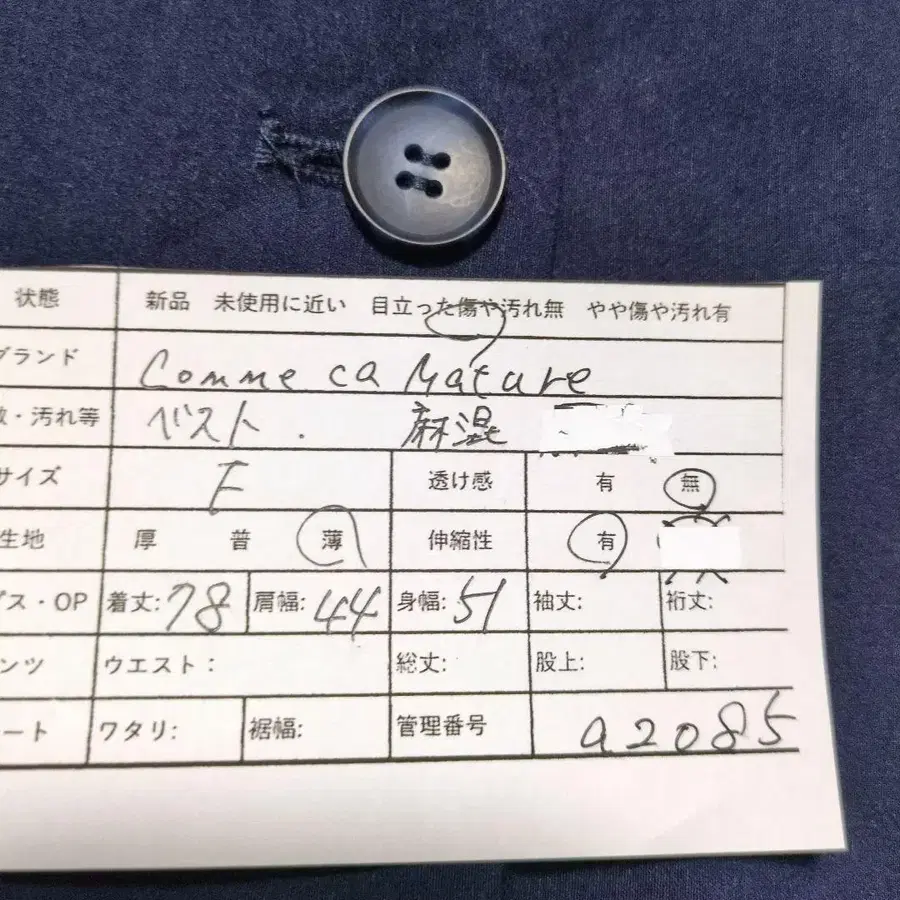 状態 新品 未使用に近い 目立った傷や汚れ無 やや傷や汚れ有
ブランド Comme ca Mature
・汚れ等 ベスト . 麻混
サイズ F 透け感 有 無
生地 厚 普 薄 伸縮性 有
ス・OP 着丈:78 肩幅:44 身幅:51 袖丈: 裄丈:
ンツ ウエスト: 総丈: 股上: 股下:
ート ワタリ: 裾幅: 管理番号 a2085